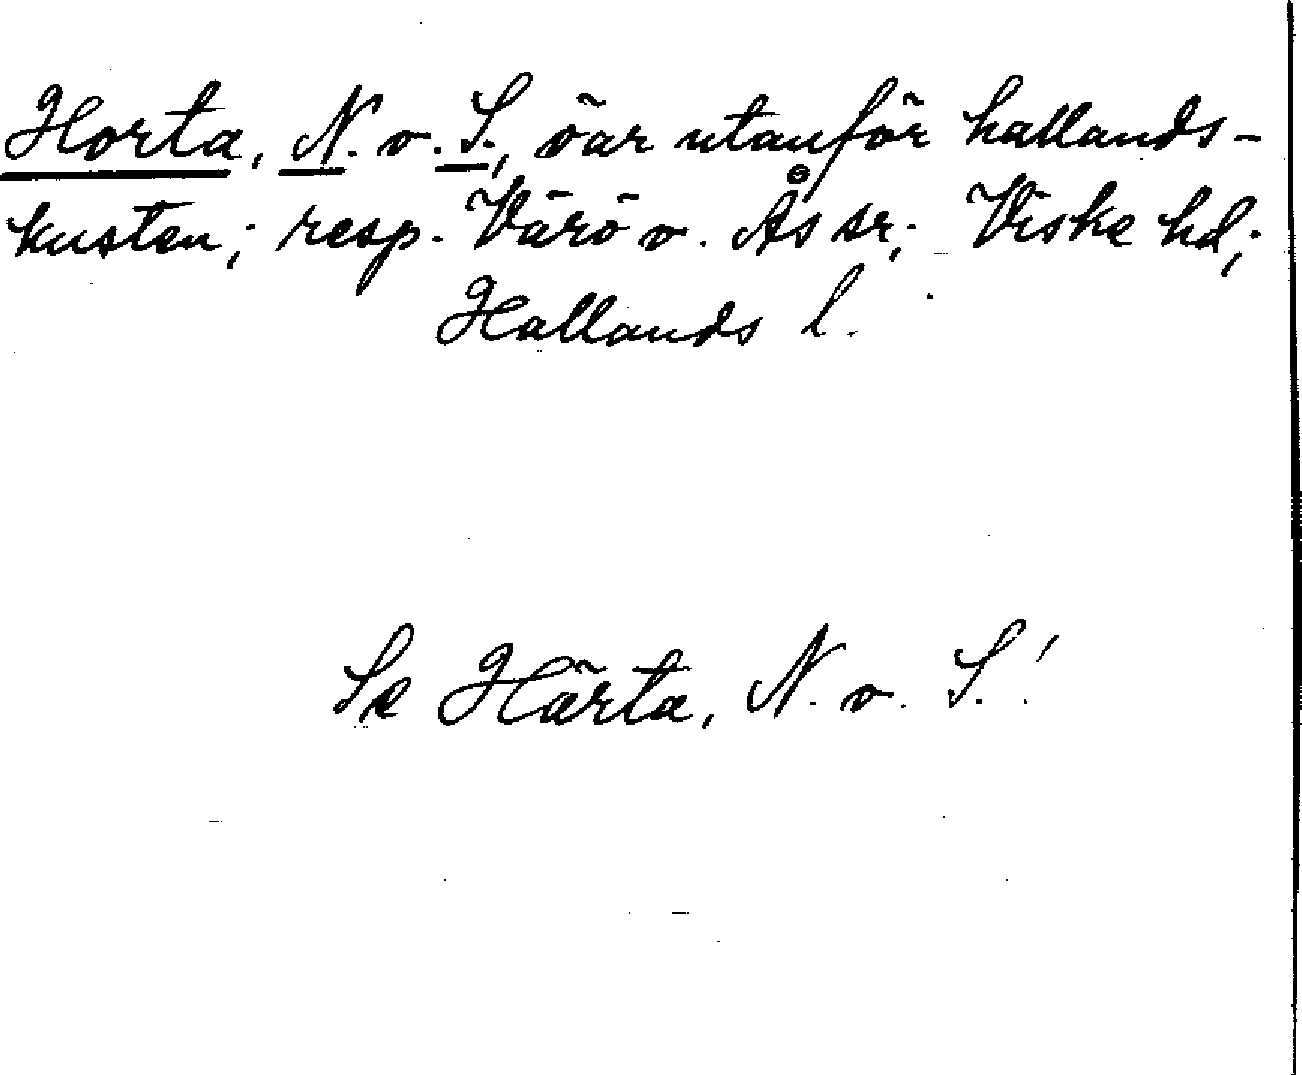 Horta, N. o. S., öar utanför hallands-
kusten; resp. Värö o. Ås sr; Viske hd;
Hallands l.
Se Härta, N. o. S.!